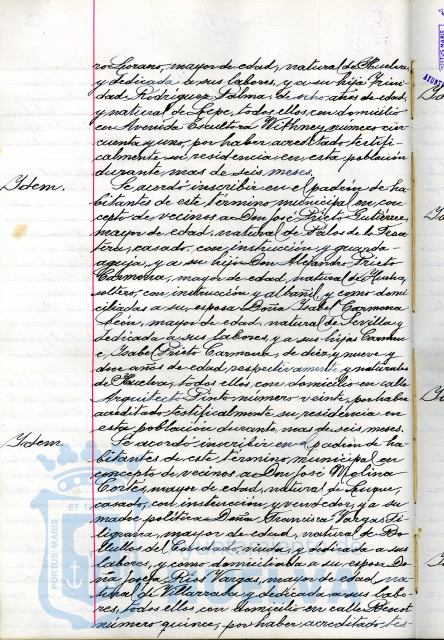 ro Lozano, mayor de edad, natural de Huelva,
y dedicada a sus labores, y a su hija Trini-
dad Rodríguez Palma, de ocho años de edad,
y natural de Lepe, todos ellos, con domicilio
en Avenida Escultora Withney, numero cin-
cuenta y uno, por haber acreditado testifi-
calmente su residencia en esta población
durante mas de seis meses.
Idem. Se acordó inscribir en el padrón de ha-
bitantes de este término municipal en con-
cepto de vecinos a Don José Prieto Gutiérrez
mayor de edad, natural de Palos de la Fron-
tera, casado, con instrucción y guarda-
aguja, y a su hijo Don Alejandro Prieto
Carmona, mayor de edad, natural de Huelva,
soltero, con instrucción y albañil, y como domi-
ciliadas a su esposa Doña Isabel Carmona
León, mayor de edad, natural de Sevilla y
dedicada a sus labores, y a sus hijas Carmen
e, Isabel Prieto Carmona, de diez y nueve y
doce años de edad, respectivamente y naturales
de Huelva, todos ellos, con domicilio en calle
Arquitecto Pinto numero veinte, por haber
acreditado testifi­calmente su residencia en
esta población durante mas de seis meses.
Idem Se acordó inscribir en el padrón de ha-
bitantes de este término municipal en
concepto de vecinos a Don José Molina
Cortés, mayor de edad, natural de Luque,
casado, con instrucción y vendedor, y a su
madre política Doña Francisca Vargas Fi-
ligrana, mayor de edad, natural de Bo-
llullos del Condado, viuda y dedicada a sus
labores, y como domiciliada a su esposa Do-
ña Josefa Rios Vargas, mayor de edad na-
tural de Villarrasa y dedicada a sus labo-
res, todos ellos con domicilio en calle Benot
numero quince, por haber acreditado tes-
PORTUS MARIS